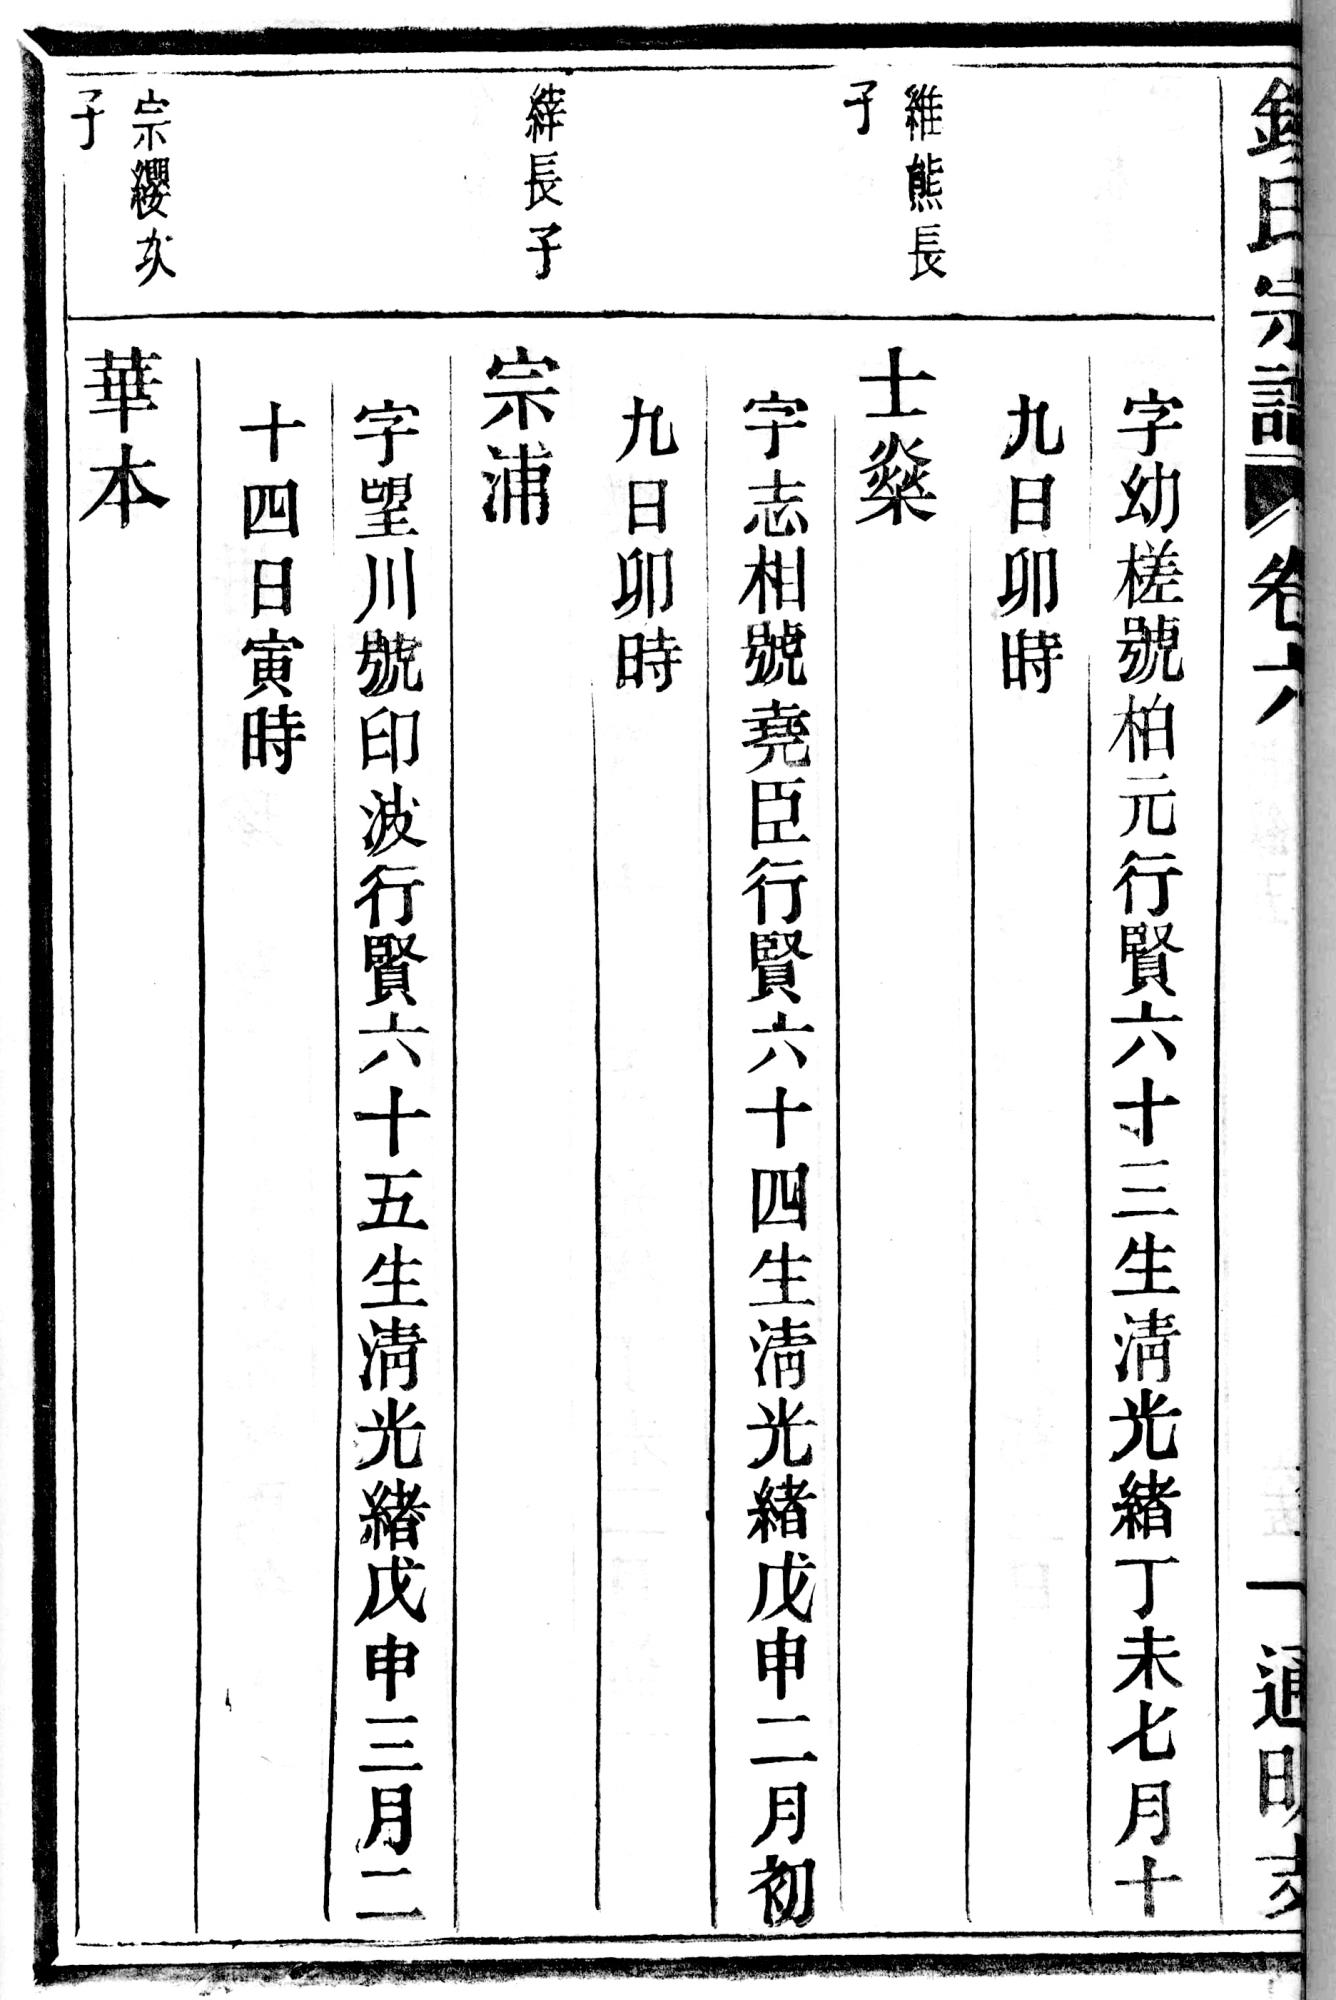 氏宗譜 卷六 一 通明
字幼槎號柏元行賢六十三生淸光緒丁未七月十
九日卯時
維熊長
子
士燊
字志相號堯臣行賢六十四生淸光緒戊申二月初
九日卯時
縡長子
宗浦
字望川號印波行賢六十五生淸光緒戊申三月二
十四日寅時
宗纓次
子
華本